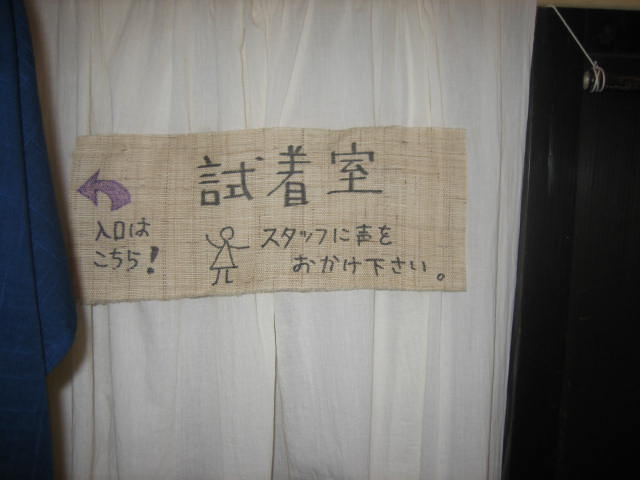 試着室
入口は
こちら!
スタッフに声を
おかけ下さい。